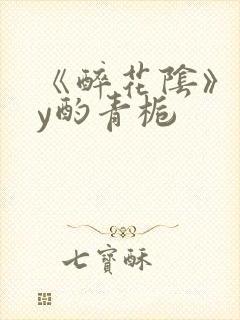 《醉花陰》
y酌青梔
七寶酥